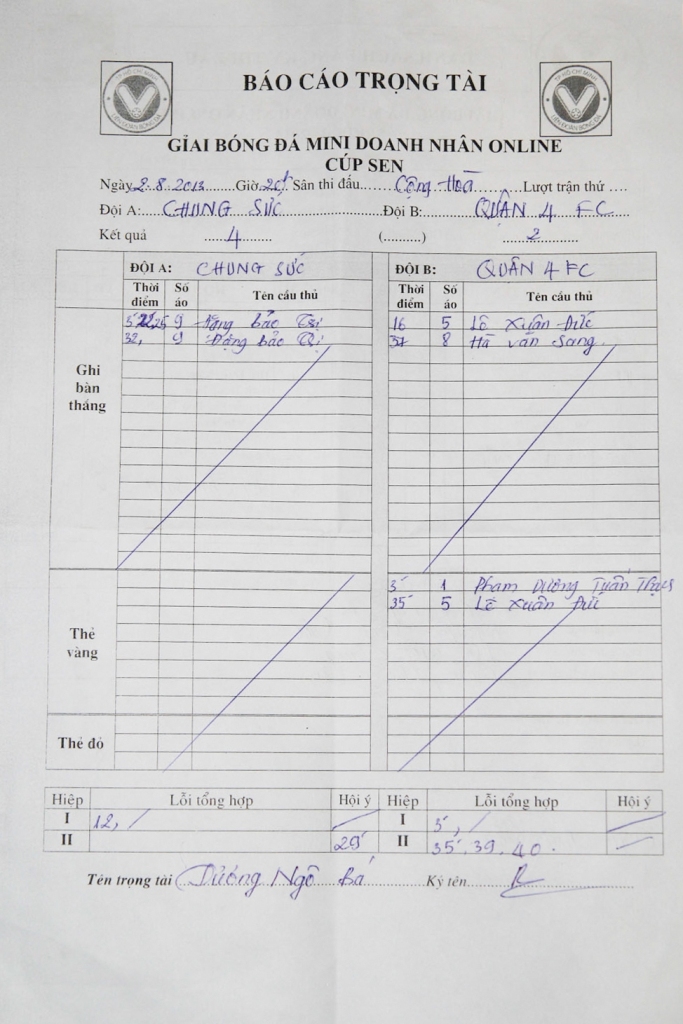 BÁO CÁO TRỌNG TÀI
TP HỒ CHÍ MINH
LIÊN ĐOÀN BÓNG ĐÁ
TP HỒ CHÍ MINH
LIÊN ĐOÀN BÓNG ĐÁ
GIẢI BÓNG ĐÁ MINI DOANH NHÂN ONLINE
CÚP SEN
Ngày 2.8.2013 Giờ 20h Sân thi đấu...... Cộng Hoà ........Lượt trận thứ ....
Đội A: CHUNG SỨC Đội B: QUẬN 4 FC
Kết quả 4 (..........) 2
ĐỘI A: CHUNG SỨC ĐỘI B: QUẬN 4 FC
Thời điểm Số áo Tên cầu thủ Thời điểm Số áo Tên cầu thủ
Ghi bàn thắng
9 Đặng Bảo Trị 16 5 Lê Xuân Đức
32, 9 Đặng Bảo Trị 8 Hà Văn Sang
Thẻ vàng
3' 1 Phạm Dương Tuấn
35' 5 Lê Xuân Đức
Thẻ đỏ
Hiệp Lỗi tổng hợp Hội ý Hiệp Lỗi tổng hợp Hội ý
I 12, / I 3', /
II 29' II 35. 39. 40.
Tên trọng tài Dương Ngô Bá Ký tên